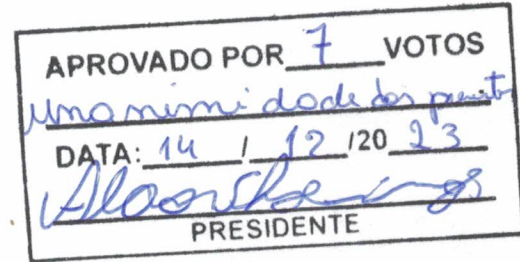 APROVADO POR 7 VOTOS
unanimidade dos
DATA: 14 / 12 /20 23
PRESIDENTE